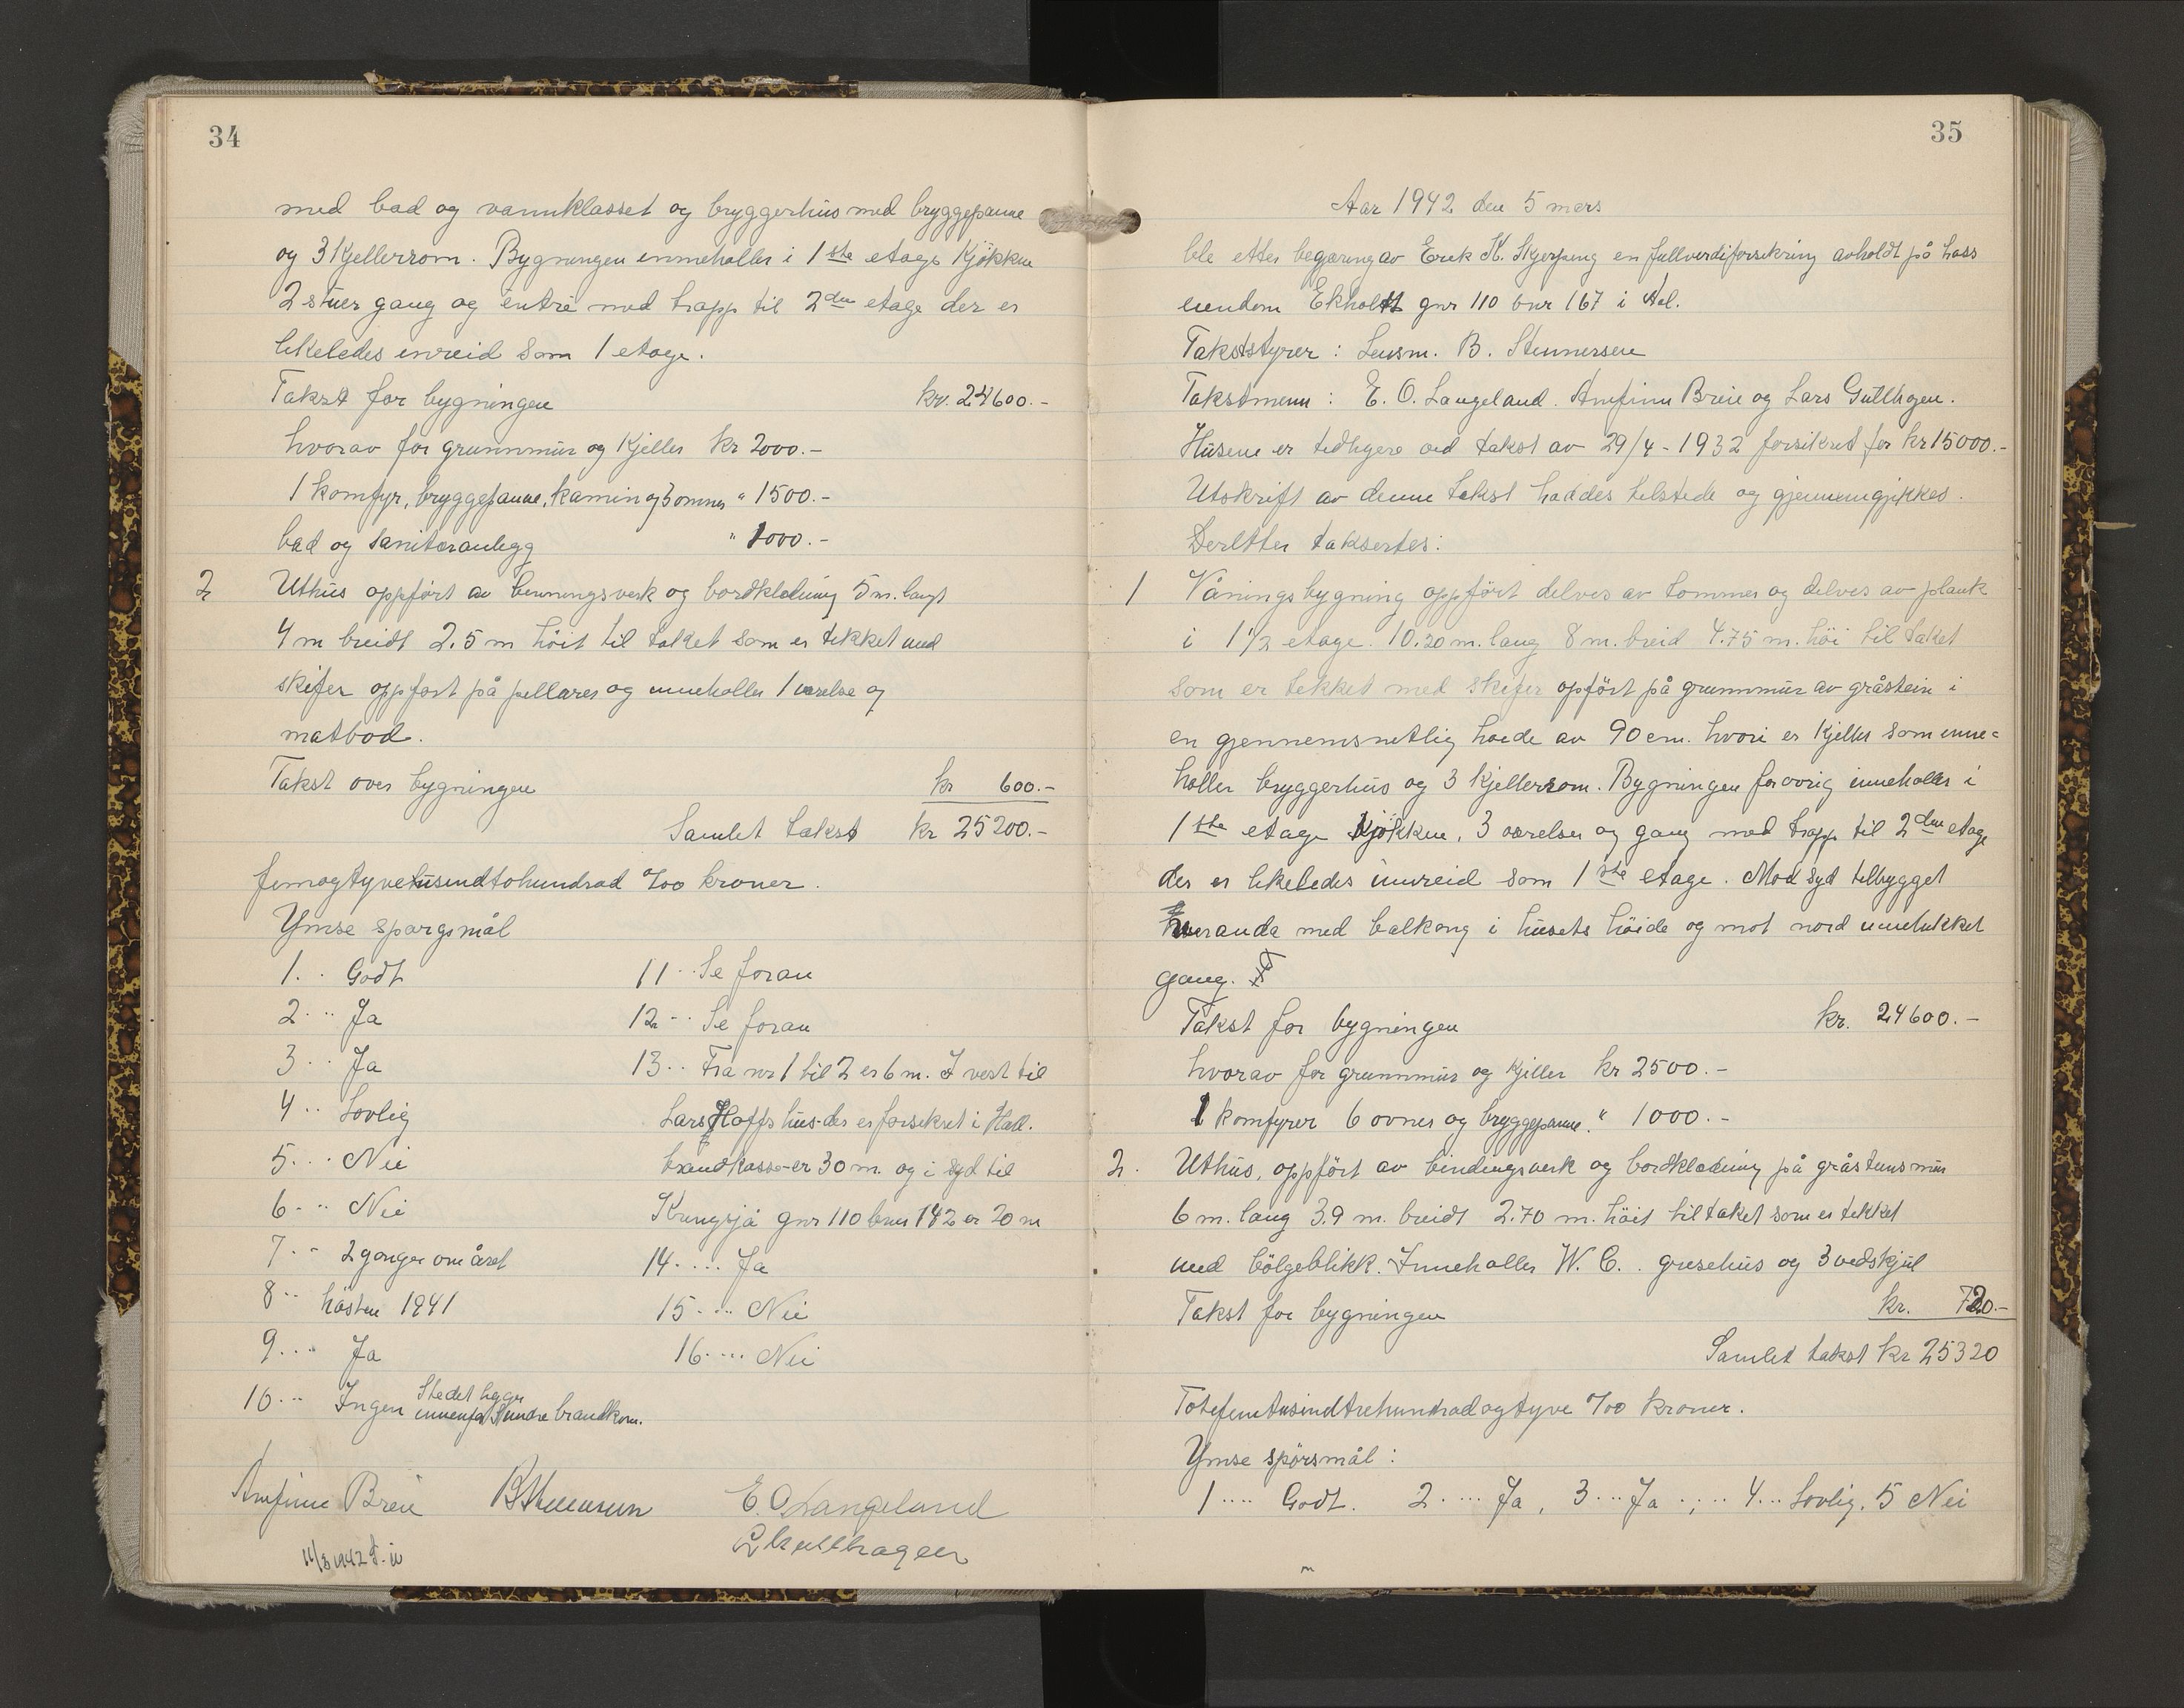 34
med bad og vannklosset og bryggerhus med bryggepanne
og 3 Kjellerrom. Bygningen inneholler i 1ste etage Kjökken
2 stuer gang og entré med trapp til 2den etage der er
likeledes inreid som 1 etage.
Takst for bygningen kr. 24600.-
hvorav for grunnmur og Kjeller kr 2000.-
1 komfyr, bryggepanne, kamin og 3 ovner " 1500.-
bad og sanitæranlegg " 1000.-
2 Uthus oppført av binningsverk og bordkledning 5 m. langt
4 m breidt 2.5 m höit til taket som er tekket med
skifer oppført på pellarer og inneholler 1 værelse og
matbod.
Takst over bygningen kr 600.-
Samlet takst kr 25200.-
femogtyvetusindtohundrad 0/00 kroner.
Ymse spørgsmål
1.. Godt
2... Ja
3... Ja
4.. Lovlig
5... Nei
6... Nei
7... 2 ganger om året
8.. hösten 1941
9.... Ja
10... Ingen Stedet ligger innenfor Sundre brandkom.
11... Se foran
12... Se foran
13.. Fra nr 1 til 2 er 6 m. I vest til
Lars Hoffs hus der er forsikret i Hall.
brandkasse er 30 m. og i syd til
Kringsjå gnr 110 bnr 142 er 20 m
14.... Ja
15.... Nei
16.... Nei
Arnfinn Breie B Stennersen E. O Langeland
L Gullhagen
11/3 1942
35
Aar 1942 den 5 mars
ble etter begæring av Erik K. Skjerping en fullverdiforsikring avholdt på hass
eiendom Ekholt gnr 110 bnr 167 i Aal.
Takststyrer : Lensm. B. Stennersen
Takstmenn : E. O. Langeland. Arnfinn Breie og Lars Gullhagen.
Husene er tidligere ved takst av 29/4 - 1932 forsikret for kr 15000.-
Utskrift av denne takst haddes tilstede og gjennemgikkes.
Deretter taksertes:
1 Våningsbygning oppfört delvis av tømmer og delvis av plank
i 1 1/2 etage. 10.20 m. lang 8 m. breid 4.75 m. höi til taket
som er tekket med skifer opfört på grunnmur av gråstein i
en gjennemsnetlig høide av 90 cm. hvori er Kjeller som inne=
holler bryggerhus og 3 kjellerrom. Bygningen forøvrig inneholler i
1ste etage Kjökken, 3 værelser og gang med trapp til 2den etage
der er likeledes innreid som 1ste etage. Mod syd tilbygget
veranda med balkong i husets höide og mot nord innelukket
gang.
Takst for bygningen kr. 24600.-
hvorav for grunnmur og Kjeller kr 2500.-
1 komfyrer 6 ovner og bryggepanne. " 1000.-
2. Uthus, oppfört av bindingsverk og bordkledning på gråsteinsmur
6 m. lang 3.9 m. breidt 2.70 m. höit til taket som er tekket
med bölgeblikk. Inneholler W. C. . grisehus og 3 vedskjul
Takst for bygningen kr. 720.-
Samlet takst kr 25320
Totifemtusindtrehundradogtyve 0/00 kroner.
Ymse spörsmål :
1.... Godt. 2.... Ja, 3... Ja .,.. 4... Lovlig, 5 Nei